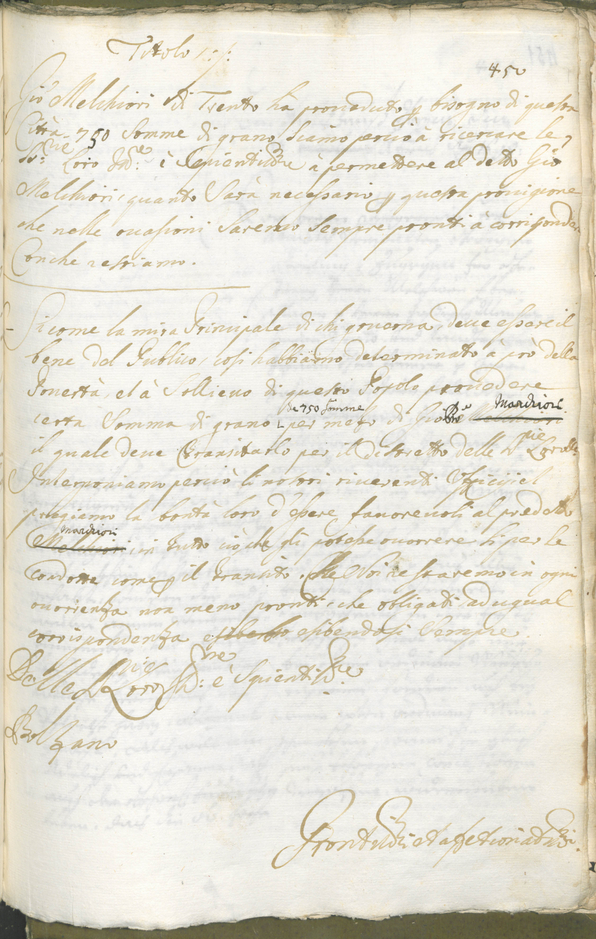 Titolo
450
Gio Melchiori di Trento ha proveduto p bisogno di questa
Città 750 Somme di grano, Siamo perciò à ricercare le
Sig.rie Loro Ill.re è Spientiss.e à permettere al detto Gio
Melchiori, quanto Sarà necessario p questa provigione
che nelle occasioni Saremo Sempre pronti à corrisponder
Con che restiamo.
Sicome la mira Principale di chi governa, deve essere il
bene del Publico, così habbiamo determinato à prò della
Povertà, et à Sollievo di questo Popolo provedere
de 750 Somme
certa Somma di grano per mezo di Gio Marchiori
il quale deve transitarlo per il distretto delle Sig.rie Loro
Interponiamo perciò li nostri riverenti Officii, et
preghiamo la bontà loro d'essere favorevoli al predetto
Marchiori
Melchiori in tutto ciò che gli potesse occorrere sì per le
Condotte come p il transito, che Noi restaremo in ogni
occorrenza non meno pronti, che obligati ad ugual
corrispondenza esibendosi Sempre.
Delle Sig.rie Loro Ill.re è Spientiss.e
Bolzano
Prontiss.i et affetionatiss.i